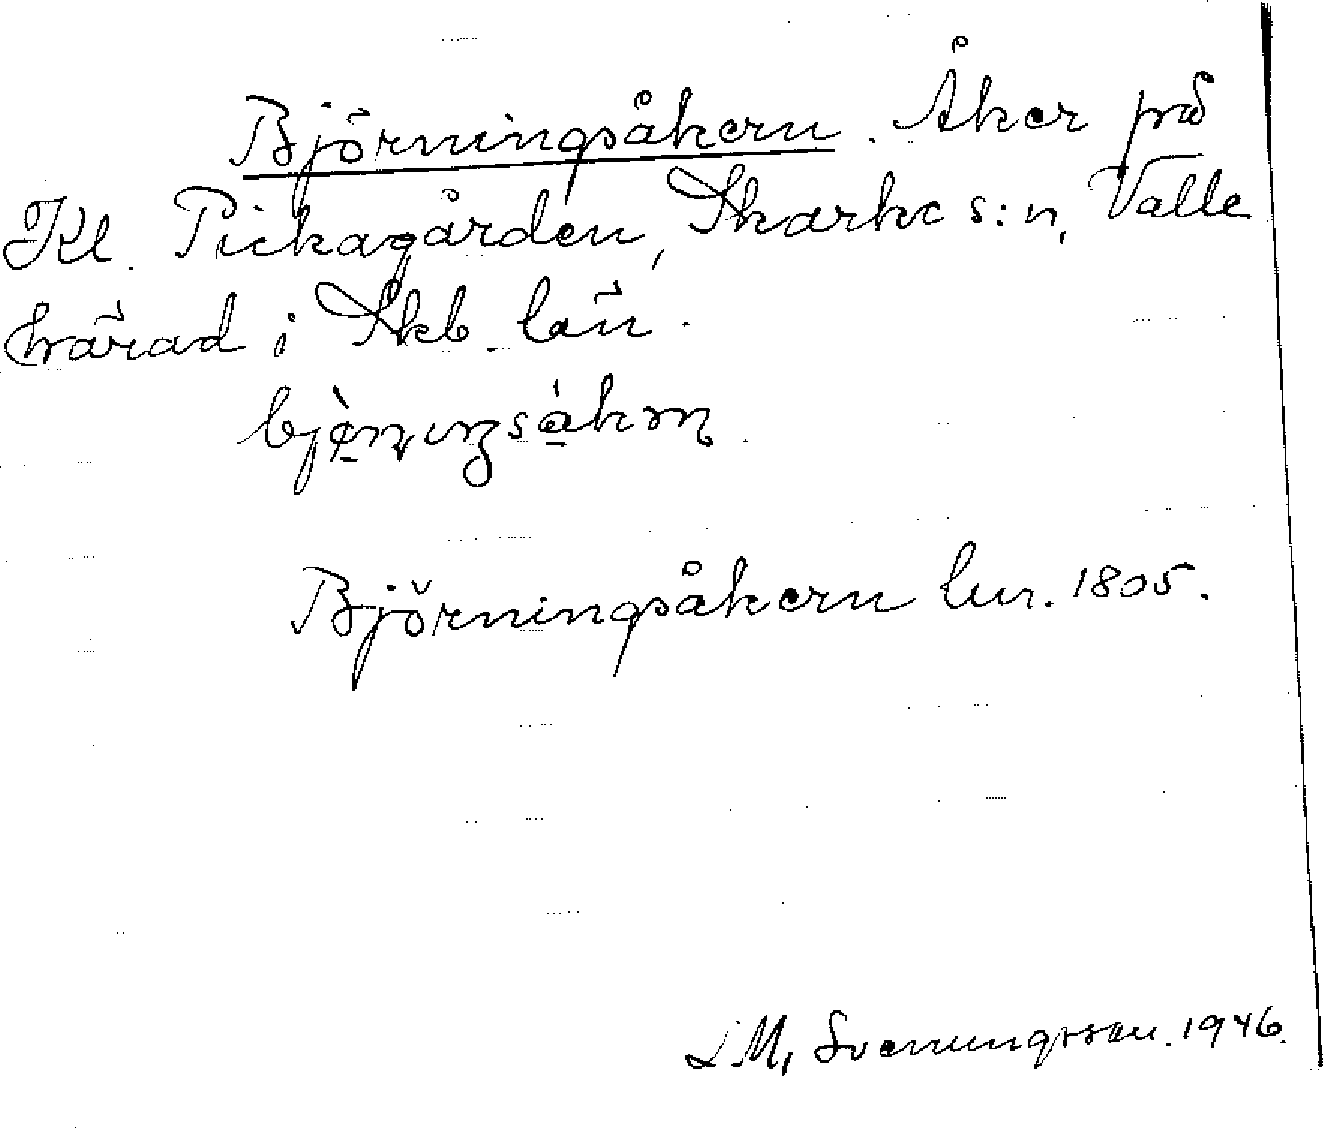 Björningsåkern. Åker på
Kl. Pickagården, Skarke s:n, Valle
härad i Skb. län.
Björningsåkern lm. 1805.
L M, Svenungsson. 1946.